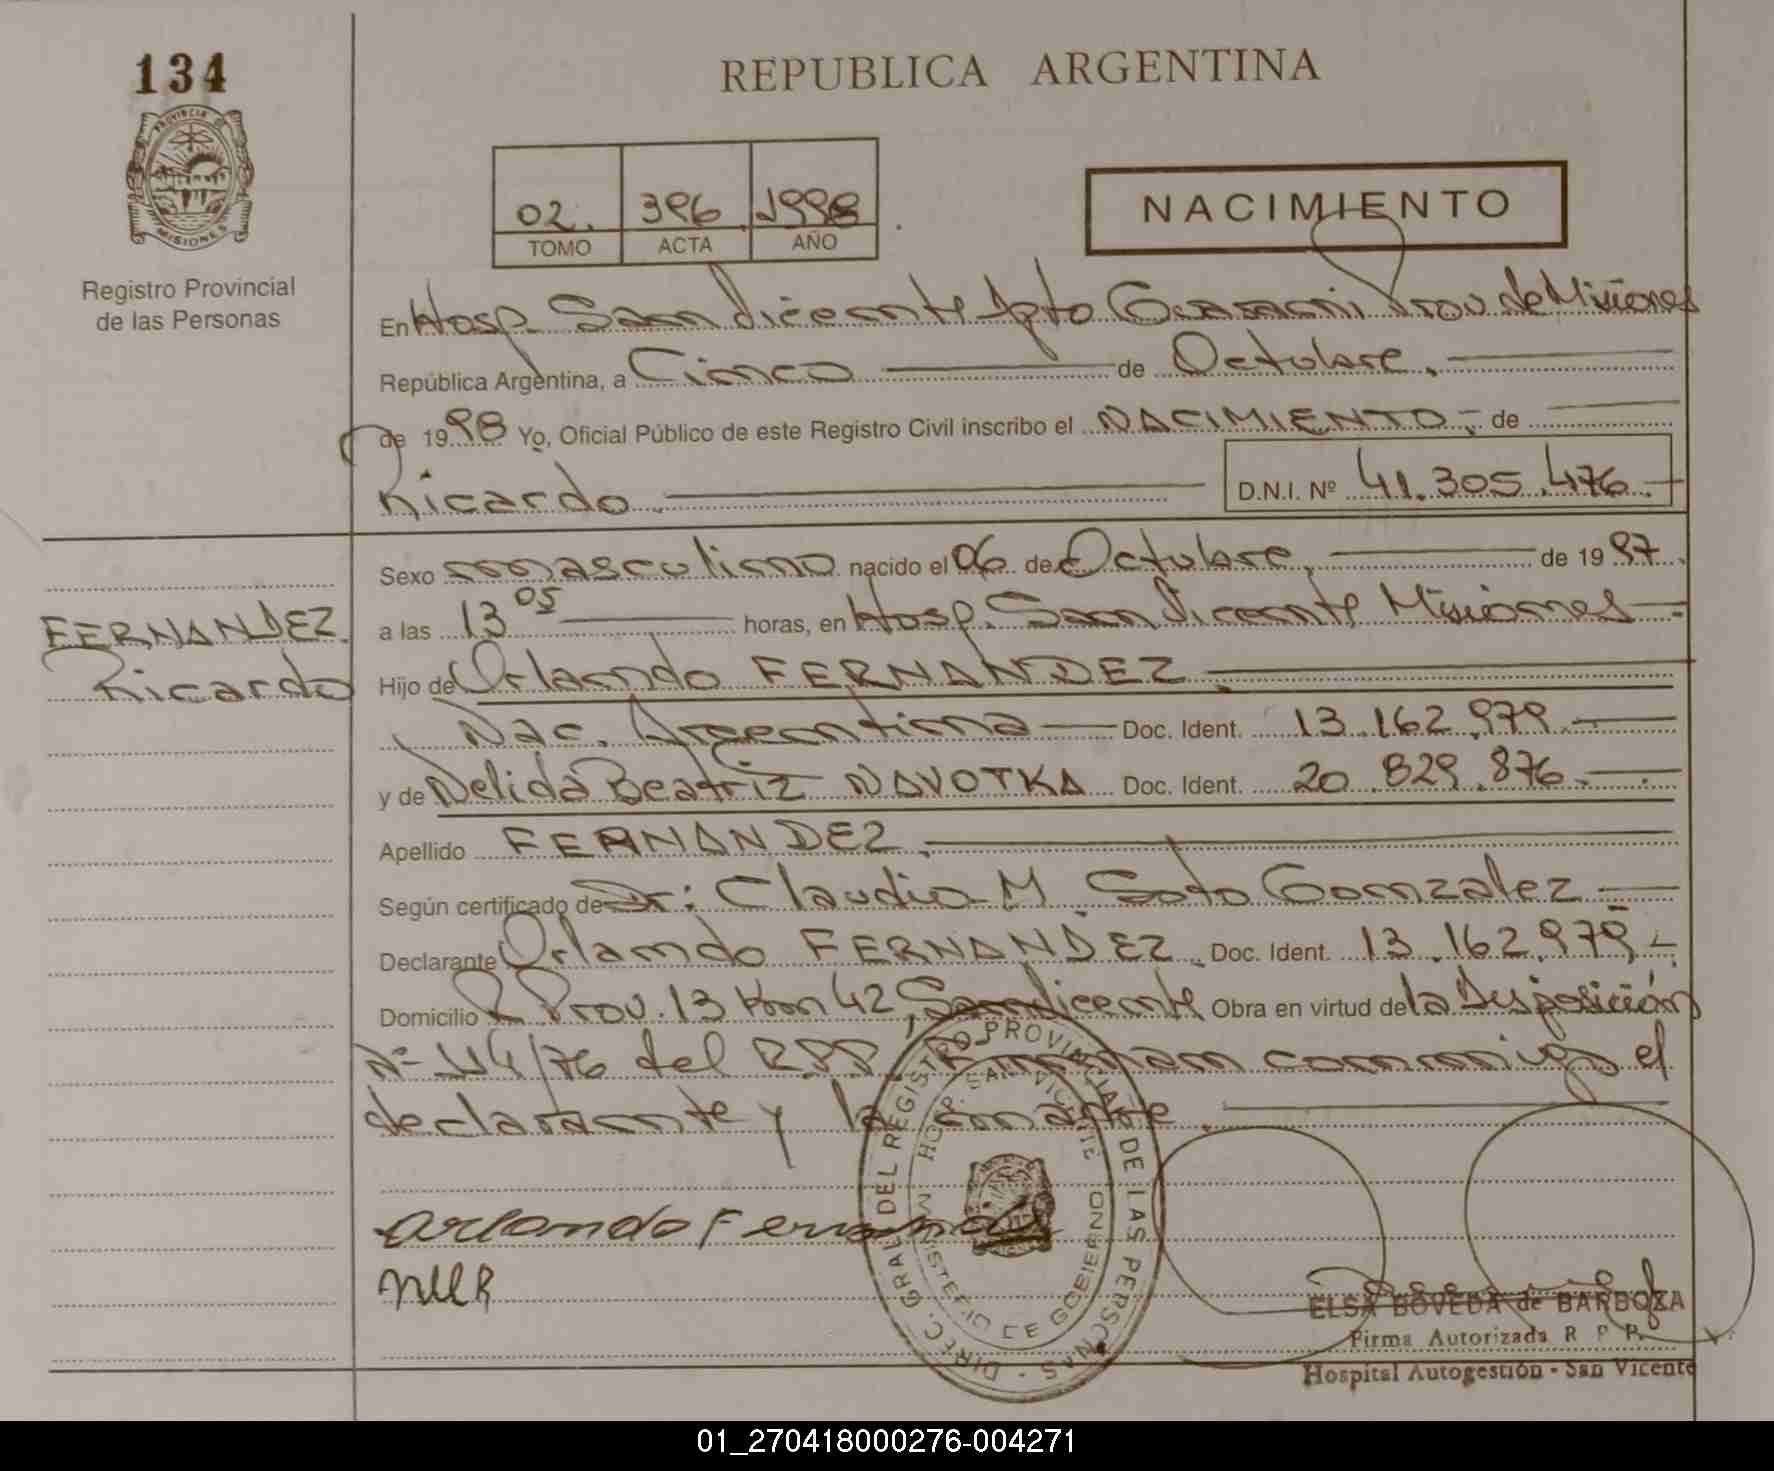 134
REPUBLICA ARGENTINA
PROVINCIA DE MISIONES
02. 396 1998
TOMO ACTA AÑO
NACIMIENTO
Registro Provincial
de las Personas
En Hosp. San Vicente Dpto Guarani Prov. de Misiones
República Argentina, a Cinco de Octubre.
de 1998 Yo, Oficial Público de este Registro Civil inscribo el NACIMIENTO.- de
Ricardo. D.N.I. Nº 41.305.476.-
FERNANDEZ
Ricardo
Sexo masculino nacido el 06 de Octubre. de 1997.
a las 13 05 horas, en Hosp. San Vicente Misiones
Hijo de Orlando FERNANDEZ.
Nac. Argentina Doc. Ident. 13.162.979.
y de Nelida Beatriz NAVOTKA Doc. Ident. 20.829.876.
Apellido FERNANDEZ.
Según certificado de Dr: Claudio M Soto Gonzalez
Declarante Orlando FERNANDEZ. Doc. Ident. 13.162.979.-
Domicilio R Prov. 13 Km 42, San Vicente Obra en virtud de la Disposición
Nº 114/76 del RPP. Firman conmigo el
declarante y la madre.
DIREC. GRAL DEL REGISTRO PROVINCIAL DE LAS PERSONAS
HOSP. SAN VICENTE
MINISTERIO DE GOBIERNO
Orlando Fernandez
ELSA BOVEDA de BARBOZA
Firma Autorizada R P P.
Hospital Autogestión - San Vicente
01_270418000276-004271